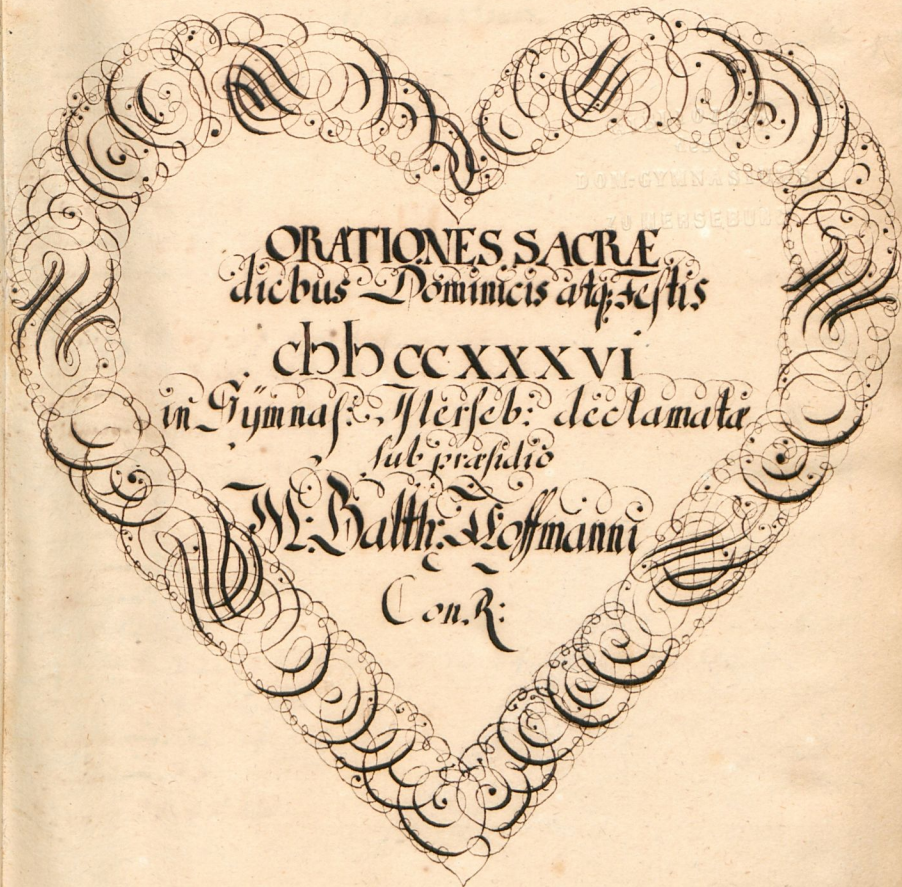 DOM-GYMNASIUMS
ZU MERSEBURG
ORATIONES SACRÆ
diebus Dominicis atq; Festis
cIɔ Iɔ CCXXXVI
in Gÿmnas: Merseb: declamatæ
sub præsidio
M. Balth: Hoffmanni
Con.R: